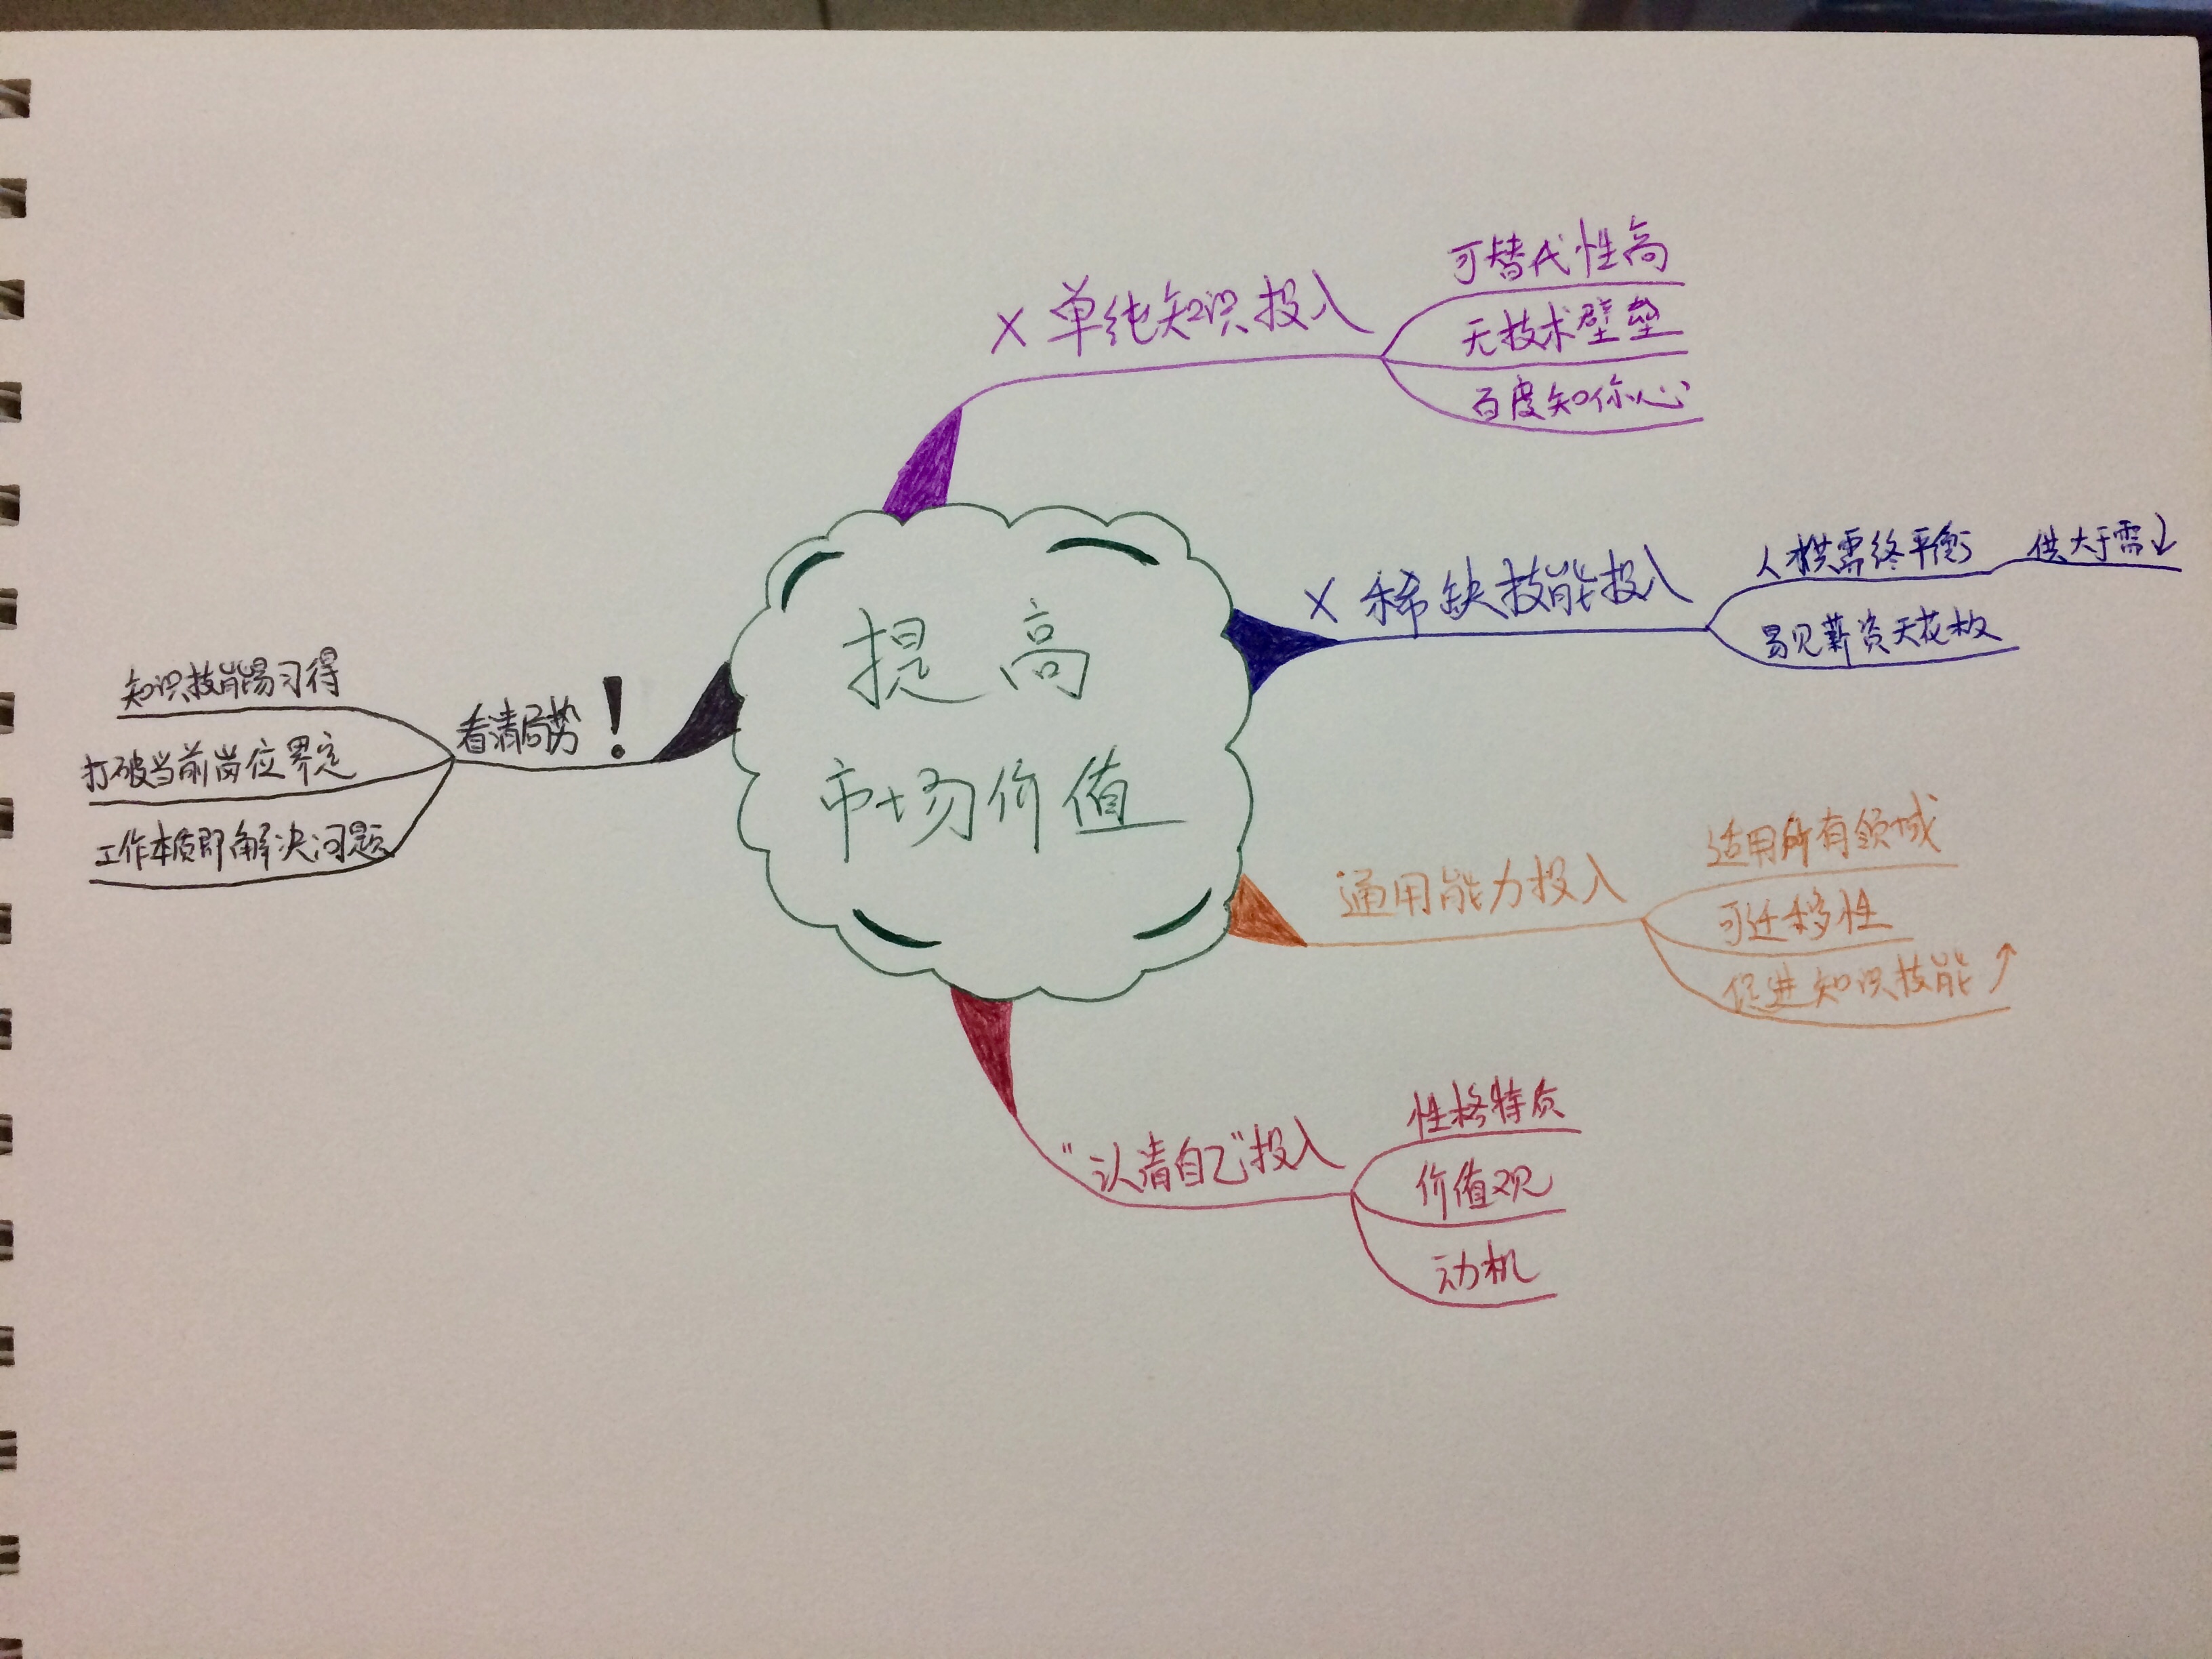 提高
市场价值
× 单纯知识投入
可替代性高
无技术壁垒
百度知你心
× 稀缺技能投入
人才供需终平衡
供大于需↓
易见薪资天花板
通用能力投入
适用所有领域
可迁移性
促进知识技能↑
"认清自己"投入
性格特质
价值观
动机
看清局势!
知识技能易习得
打破当前岗位界定
工作本质即解决问题